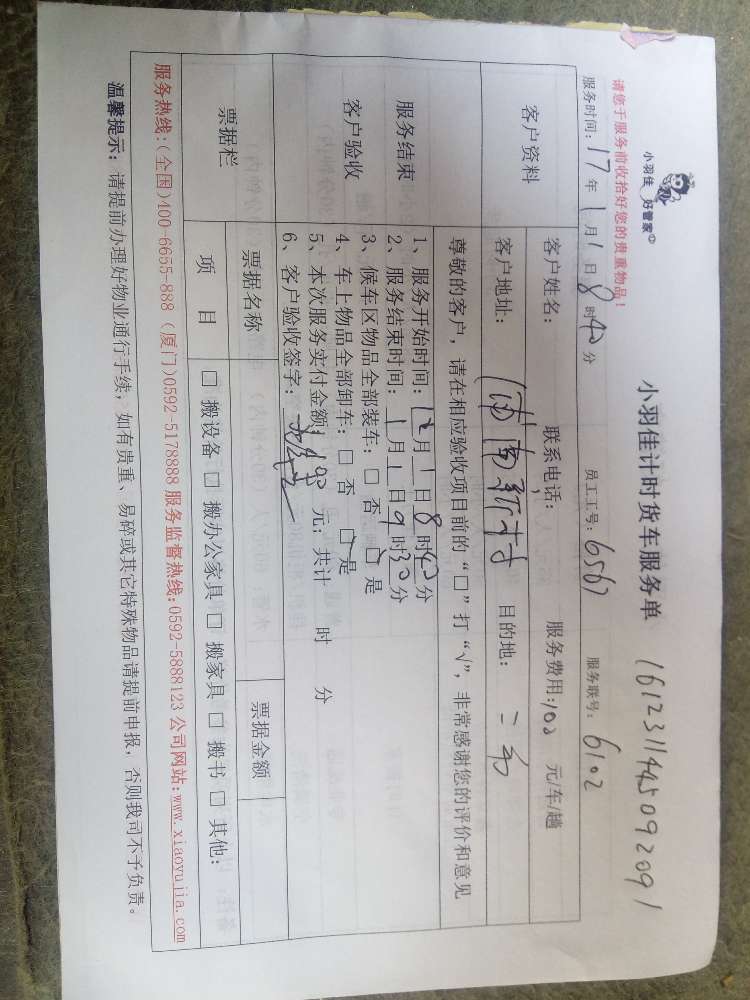 小羽佳 好管家
小羽佳计时货车服务单 1612311445092091
请您于服务前收拾好您的贵重物品！
服务时间：17年1月1日8时40分 员工工号：6567 服务联号：6102
客户资料
客户姓名： 联系电话： 服务费用：100 元/车/趟
客户地址： 新村 目的地：
服务结束
客户验收
尊敬的客户，请在相应验收项目前的“□”打“√”，非常感谢您的评价和意见
1、服务开始时间：12月1日8时40分
2、服务结束时间：1月1日9时30分
3、候车区物品全部装车：□ 否 □ 是
4、车上物品全部卸车：□ 否 □ 是
5、本次服务实付金额：100 元；共计 时 分
6、客户验收签字：
票据栏
票据名称 票据金额
项 目 □ 搬设备 □ 搬办公家具 □ 搬家具 □ 搬书 □ 其他：
服务热线：(全国)400-6655-888 (厦门)0592-5178888 服务监督热线：0592-5888123 公司网站：www.xiaoyujia.com
温馨提示：请提前办理好物业通行手续，如有贵重、易碎或其它特殊物品请提前申报，否则我司不予负责。